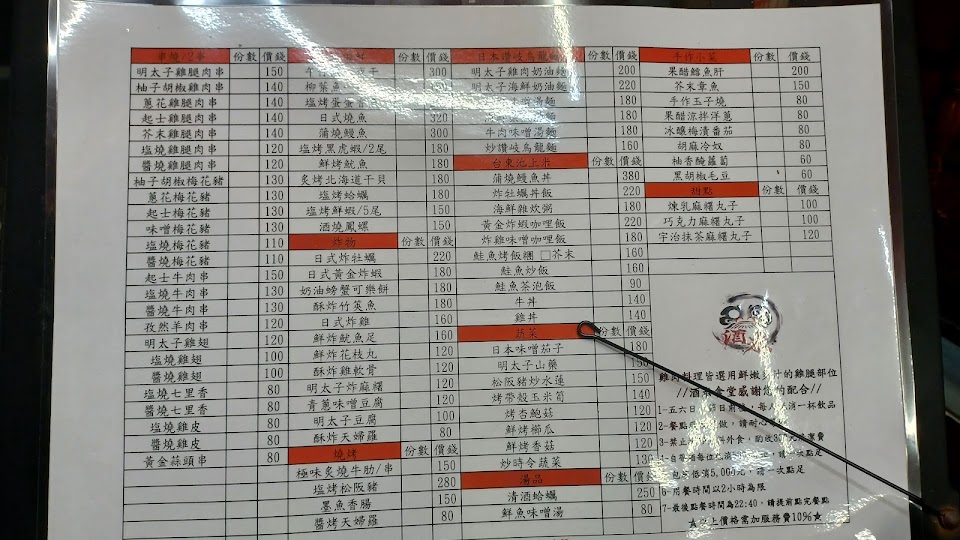 串燒/2串 份數 價錢
明太子雞腿肉串 150
柚子胡椒雞腿肉串 140
蔥花雞腿肉串 140
起士雞腿肉串 140
芥末雞腿肉串 140
塩燒雞腿肉串 120
醬燒雞腿肉串 120
柚子胡椒梅花豬 130
蔥花梅花豬 130
起士梅花豬 130
味噌梅花豬 130
塩燒梅花豬 110
醬燒梅花豬 110
起士牛肉串 150
塩燒牛肉串 130
醬燒牛肉串 130
孜然羊肉串 120
明太子雞翅 120
塩燒雞翅 100
醬燒雞翅 100
塩燒七里香 80
醬燒七里香 80
塩燒雞皮 80
醬燒雞皮 80
黃金蒜頭串 80
份數 價錢
300
柳葉魚
塩烤蛋
日式燒魚 320
蒲燒鰻魚 300
塩烤黑虎蝦/2尾 180
鮮烤魷魚 180
炙烤北海道干貝 180
塩烤蛤蠣 180
塩烤鮮蝦/5尾 180
酒燒鳳螺 150
炸物 份數 價錢
日式炸牡蠣 220
日式黃金炸蝦 180
奶油螃蟹可樂餅 180
酥炸竹筴魚 180
日式炸雞 160
鮮炸魷魚足 160
鮮炸花枝丸 120
酥炸雞軟骨 120
明太子炸麻糬 120
青蔥味噌豆腐 120
明太子豆腐 100
酥炸天婦羅 80
燒烤 份數 價錢
極味炙燒牛肋/串 150
塩烤松阪豬 280
墨魚香腸 150
醬烤天婦羅 80
日本讚岐烏龍麵 份數 價錢
明太子雞肉奶油麵 200
明太子海鮮奶油麵 220
湯麵 180
牛肉味噌湯麵 180
炒讚岐烏龍麵 160
台東池上米 份數 價錢
蒲燒鰻魚丼 380
炸牡蠣丼飯 220
海鮮雜炊粥 180
黃金炸蝦咖哩飯 220
炸雞味噌咖哩飯 180
鮭魚烤飯糰 □芥末 160
鮭魚炒飯 160
鮭魚茶泡飯 90
牛丼 140
雞丼 140
蔬菜 份數 價錢
日本味噌茄子 180
明太子山藥 150
松阪豬炒水蓮 150
烤帶殼玉米筍 140
烤杏鮑菇 120
鮮烤櫛瓜 120
鮮烤香菇 120
炒時令蔬菜 130
湯品 份數 價錢
清酒蛤蠣 250
鮮魚味噌湯 80
手作小菜 份數 價錢
果醋鱈魚肝 200
芥末章魚 150
手作玉子燒 80
果醋涼拌洋蔥 80
冰釀梅漬番茄 80
胡麻冷奴 80
柚香醃蘿蔔 60
黑胡椒毛豆 60
甜點 份數 價錢
煉乳麻糬丸子 100
巧克力麻糬丸子 100
宇治抹茶麻糬丸子 120
酒
雞肉料理皆選用鮮嫩多汁的雞腿部位
//酒 食堂感謝您的配合//
1-五六日 節日前 每人 消一杯飲品
2-餐點 做，請耐心
3-禁止 外食，酌收 費
4-自 酒每位 消 次點足
5-包 低消5,000元，請一次點足
6-用餐時間以2小時為限
7-最後點餐時間為22:40，請提前點完餐點
★以上價格需加服務費10%★